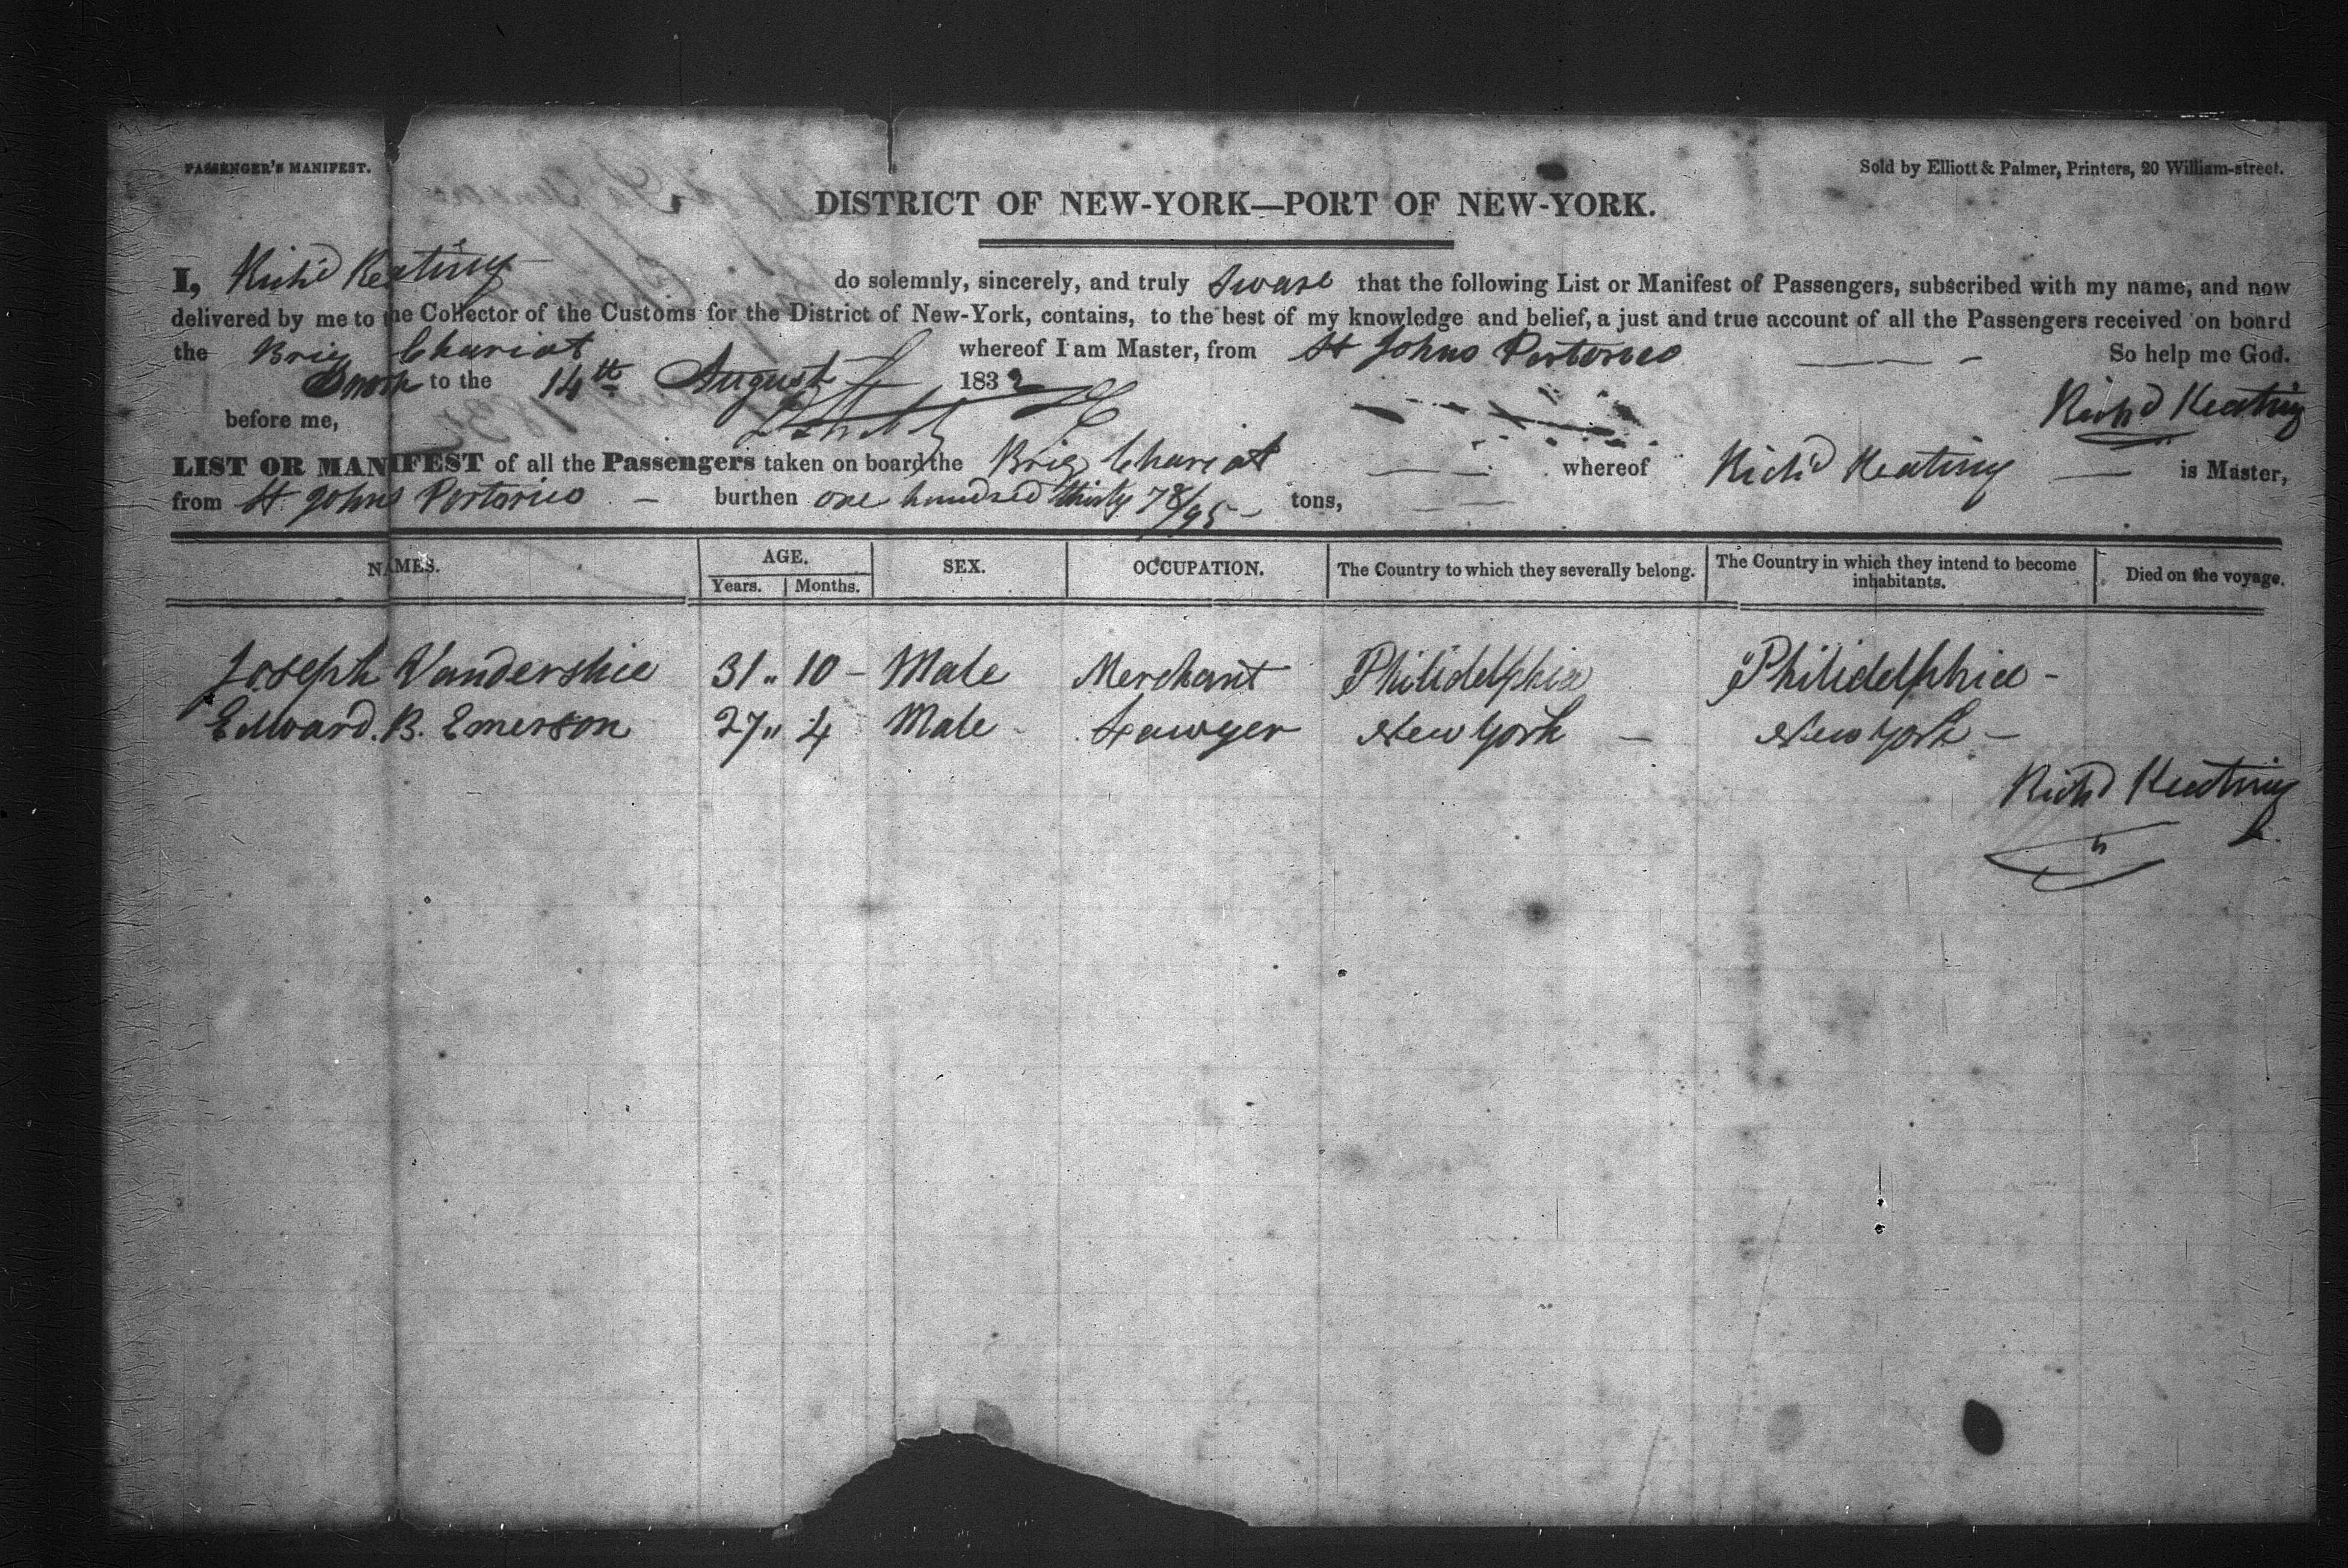 PASSENGER'S MANIFEST.
Sold by Elliott & Palmer, Printers, 20 William-street.
DISTRICT OF NEW-YORK—PORT OF NEW-YORK.
I, Rich'd Keating do solemnly, sincerely, and truly swear that the following List or Manifest of Passengers, subscribed with my name, and now
delivered by me to the Collector of the Customs for the District of New-York, contains, to the best of my knowledge and belief, a just and true account of all the Passengers received on board
the Brig Chariot whereof I am Master, from St Johns Portorico So help me God.
Sworn to the 14th August 1832
Rich'd Keating
before me,
LIST OR MANIFEST of all the Passengers taken on board the Brig Chariot whereof Rich'd Keating is Master,
from St. Johns Portorico burthen one hundred thirty 78/95 tons,
NAMES. AGE. SEX. OCCUPATION. The Country to which they severally belong. The Country in which they intend to become inhabitants. Died on the voyage.
Years. Months.
Joseph Vandershie 31 " 10 - Male Merchant Philidelphia Philidelphia -
Edward. B. Emerson 27 " 4 Male Lawyer New York - New York -
Rich'd Keating